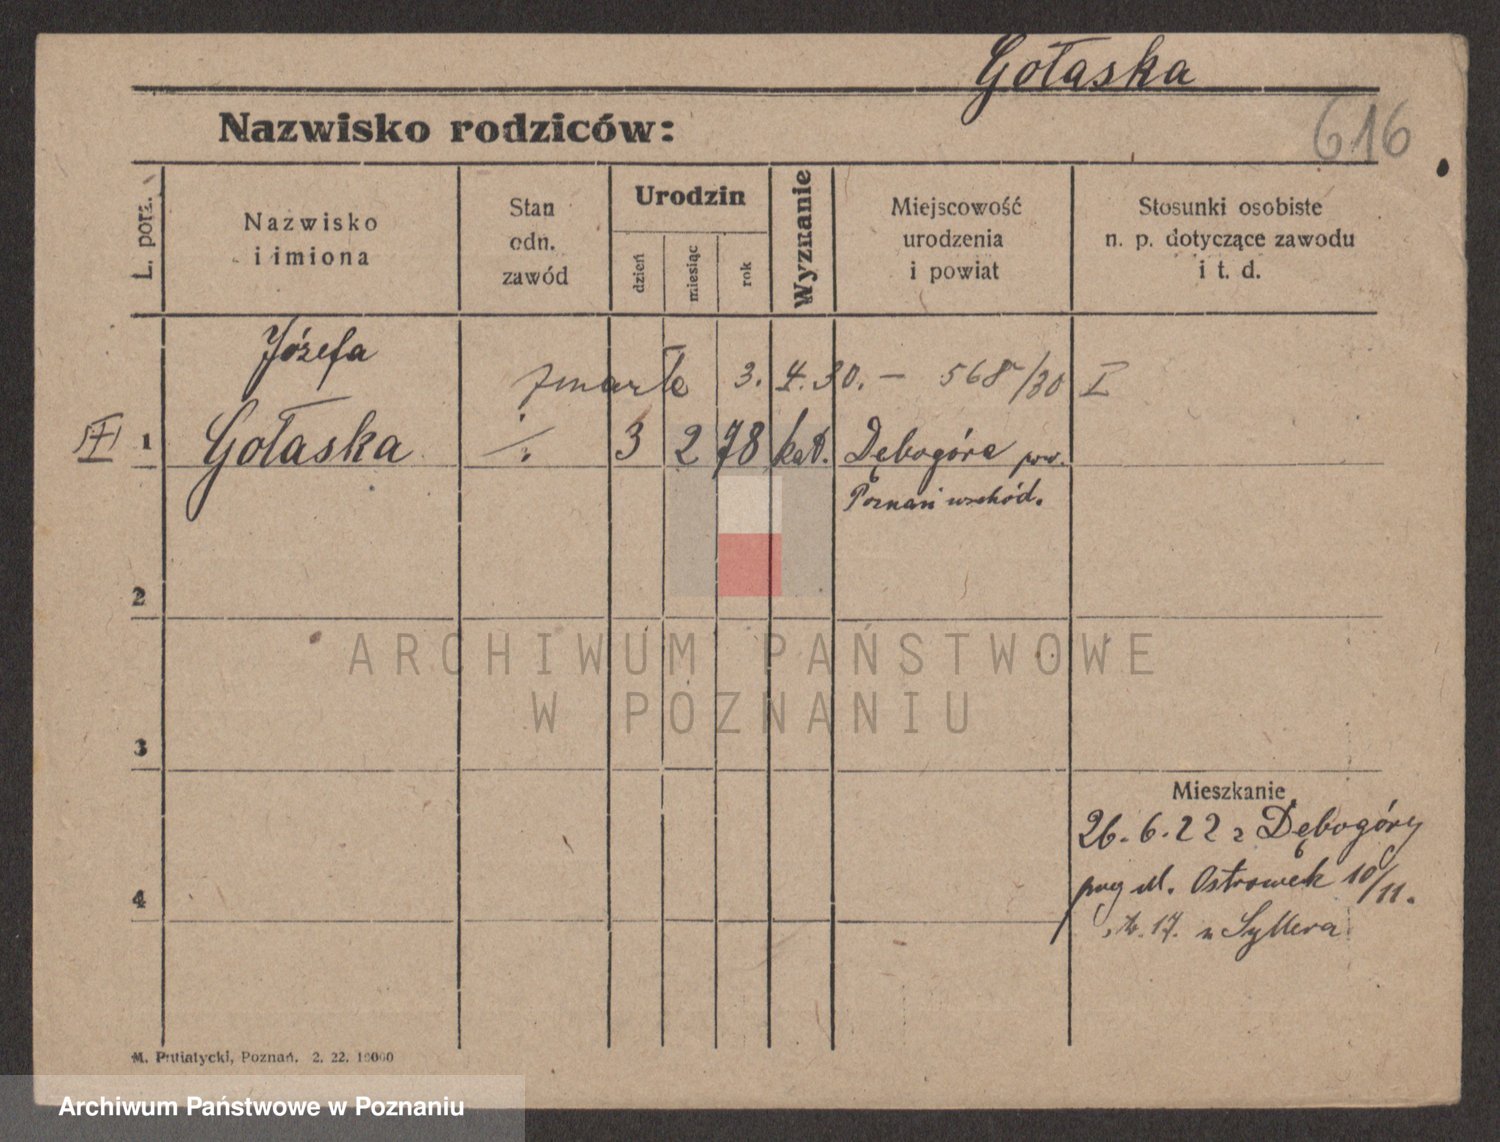 Gołaska
Nazwisko rodziców:
616
L. porz.
Nazwisko
i imiona
Stan
odn.
zawód
Urodzin
dzień
miesiąc
rok
Wyznanie
Miejscowość
urodzenia
i powiat
Stosunki osobiste
n. p. dotyczące zawodu
i t. d.
Józefa
zmarła 3. 4. 30. — 568/30 I
1 Gołaska 3 2 78 kat. Dębogóra pow.
Poznań wschód.
2
ARCHIWUM PAŃSTWOWE
W POZNANIU
3
Mieszkanie
26.6.22 z Dębogóry
4
ul. Ostrowek 10/11.
17. u Syllera
M. Putiatycki, Poznań. 2. 22. 10000
Archiwum Państwowe w Poznaniu